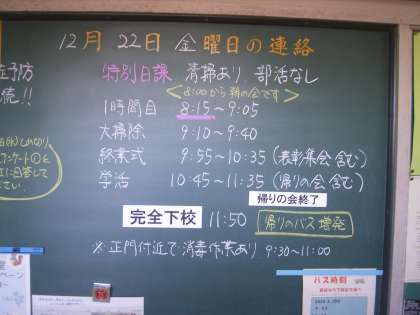 12月 22日 金曜日の連絡
特別日課 清掃あり、部活なし
<8:00から朝の会です>
1時間目 8:15~9:05
大掃除 9:10~9:40
終業式 9:55~10:35 (表彰集会含む)
学活 10:45~11:35 (帰りの会含む)
帰りの会終了
完全下校 11:50 帰りのバス増発
※正門付近で消毒作業あり 9:30~11:00
予防
続!!
バス時刻